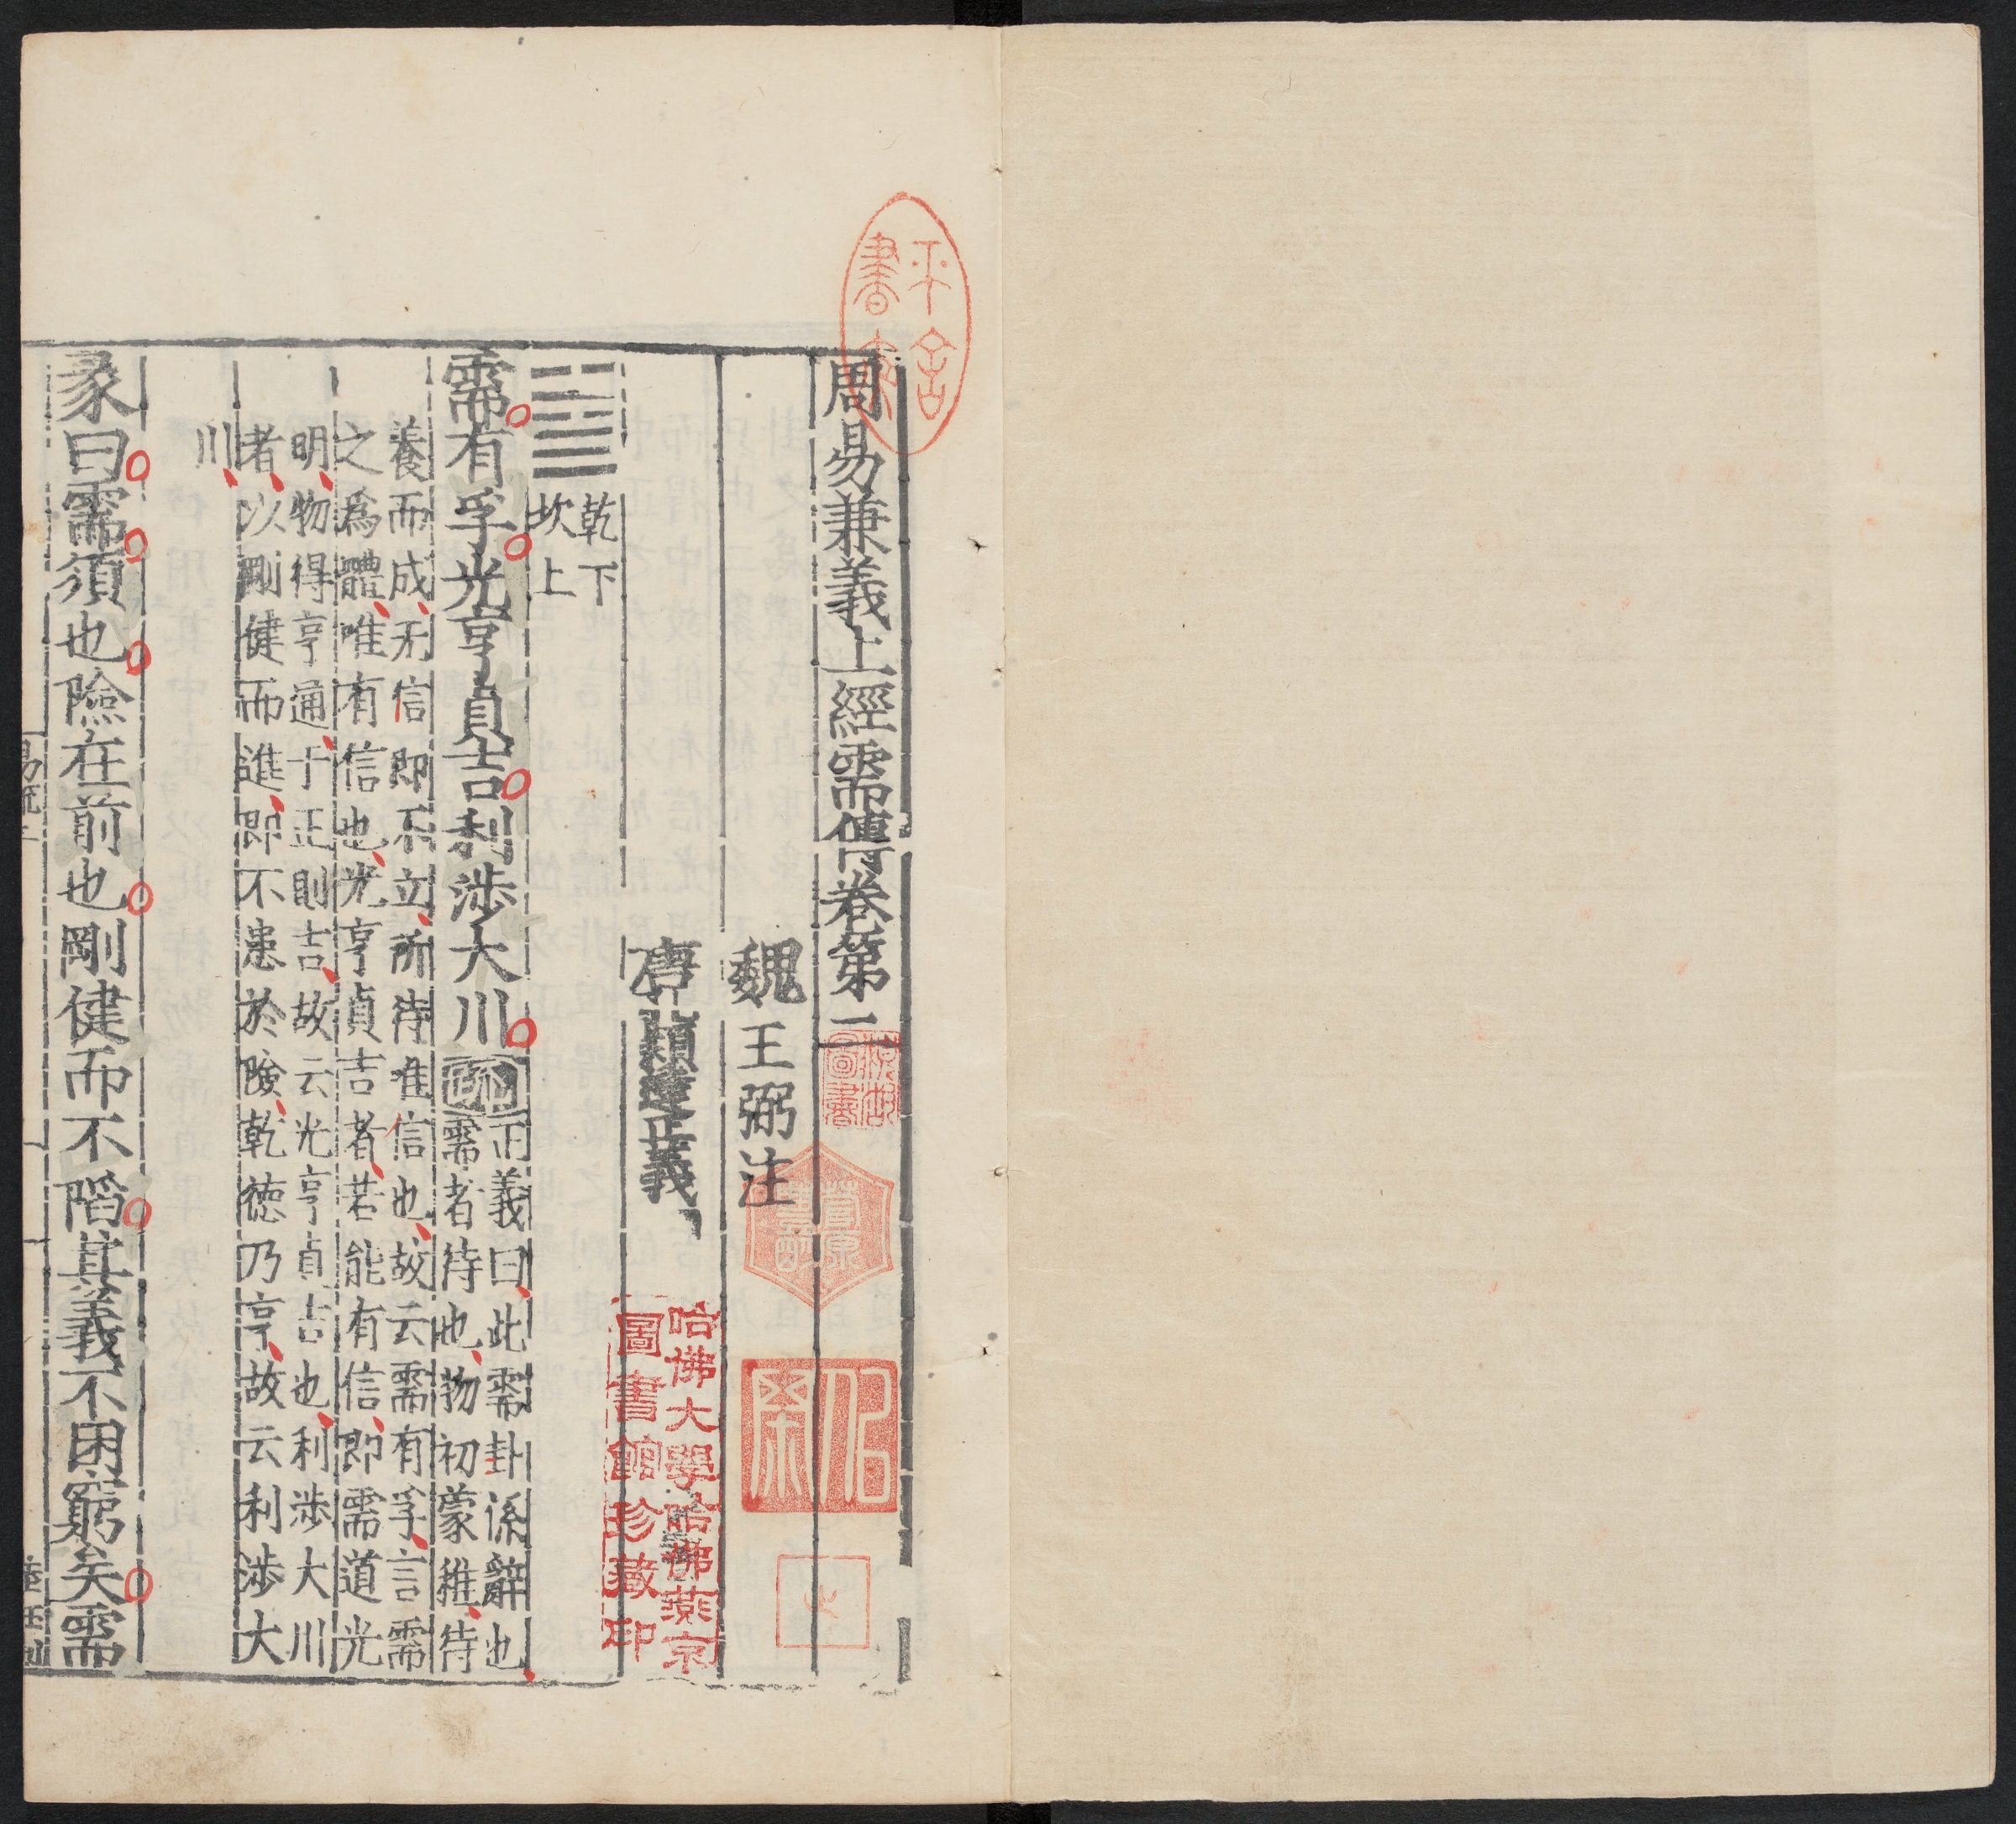 周易兼義上經需傳卷第二
魏王弼注
唐穎達正義
乾下
坎上
需有孚光亨貞吉利涉大川疏
正義曰此需卦係辭也
需者待也物初蒙稚待
養而成无信即不立所待唯信也故云需有孚言需
之為體唯有信也光亨貞吉者若能有信即需道光
明物得亨通于正則吉故云光亨貞吉也利涉大川
者以剛健而進即不患於險乾德乃亨故云利涉大
川
彖曰需須也險在前也剛健而不陷其義不困窮矣需
哈佛大學哈佛燕京
圖書館珍藏印